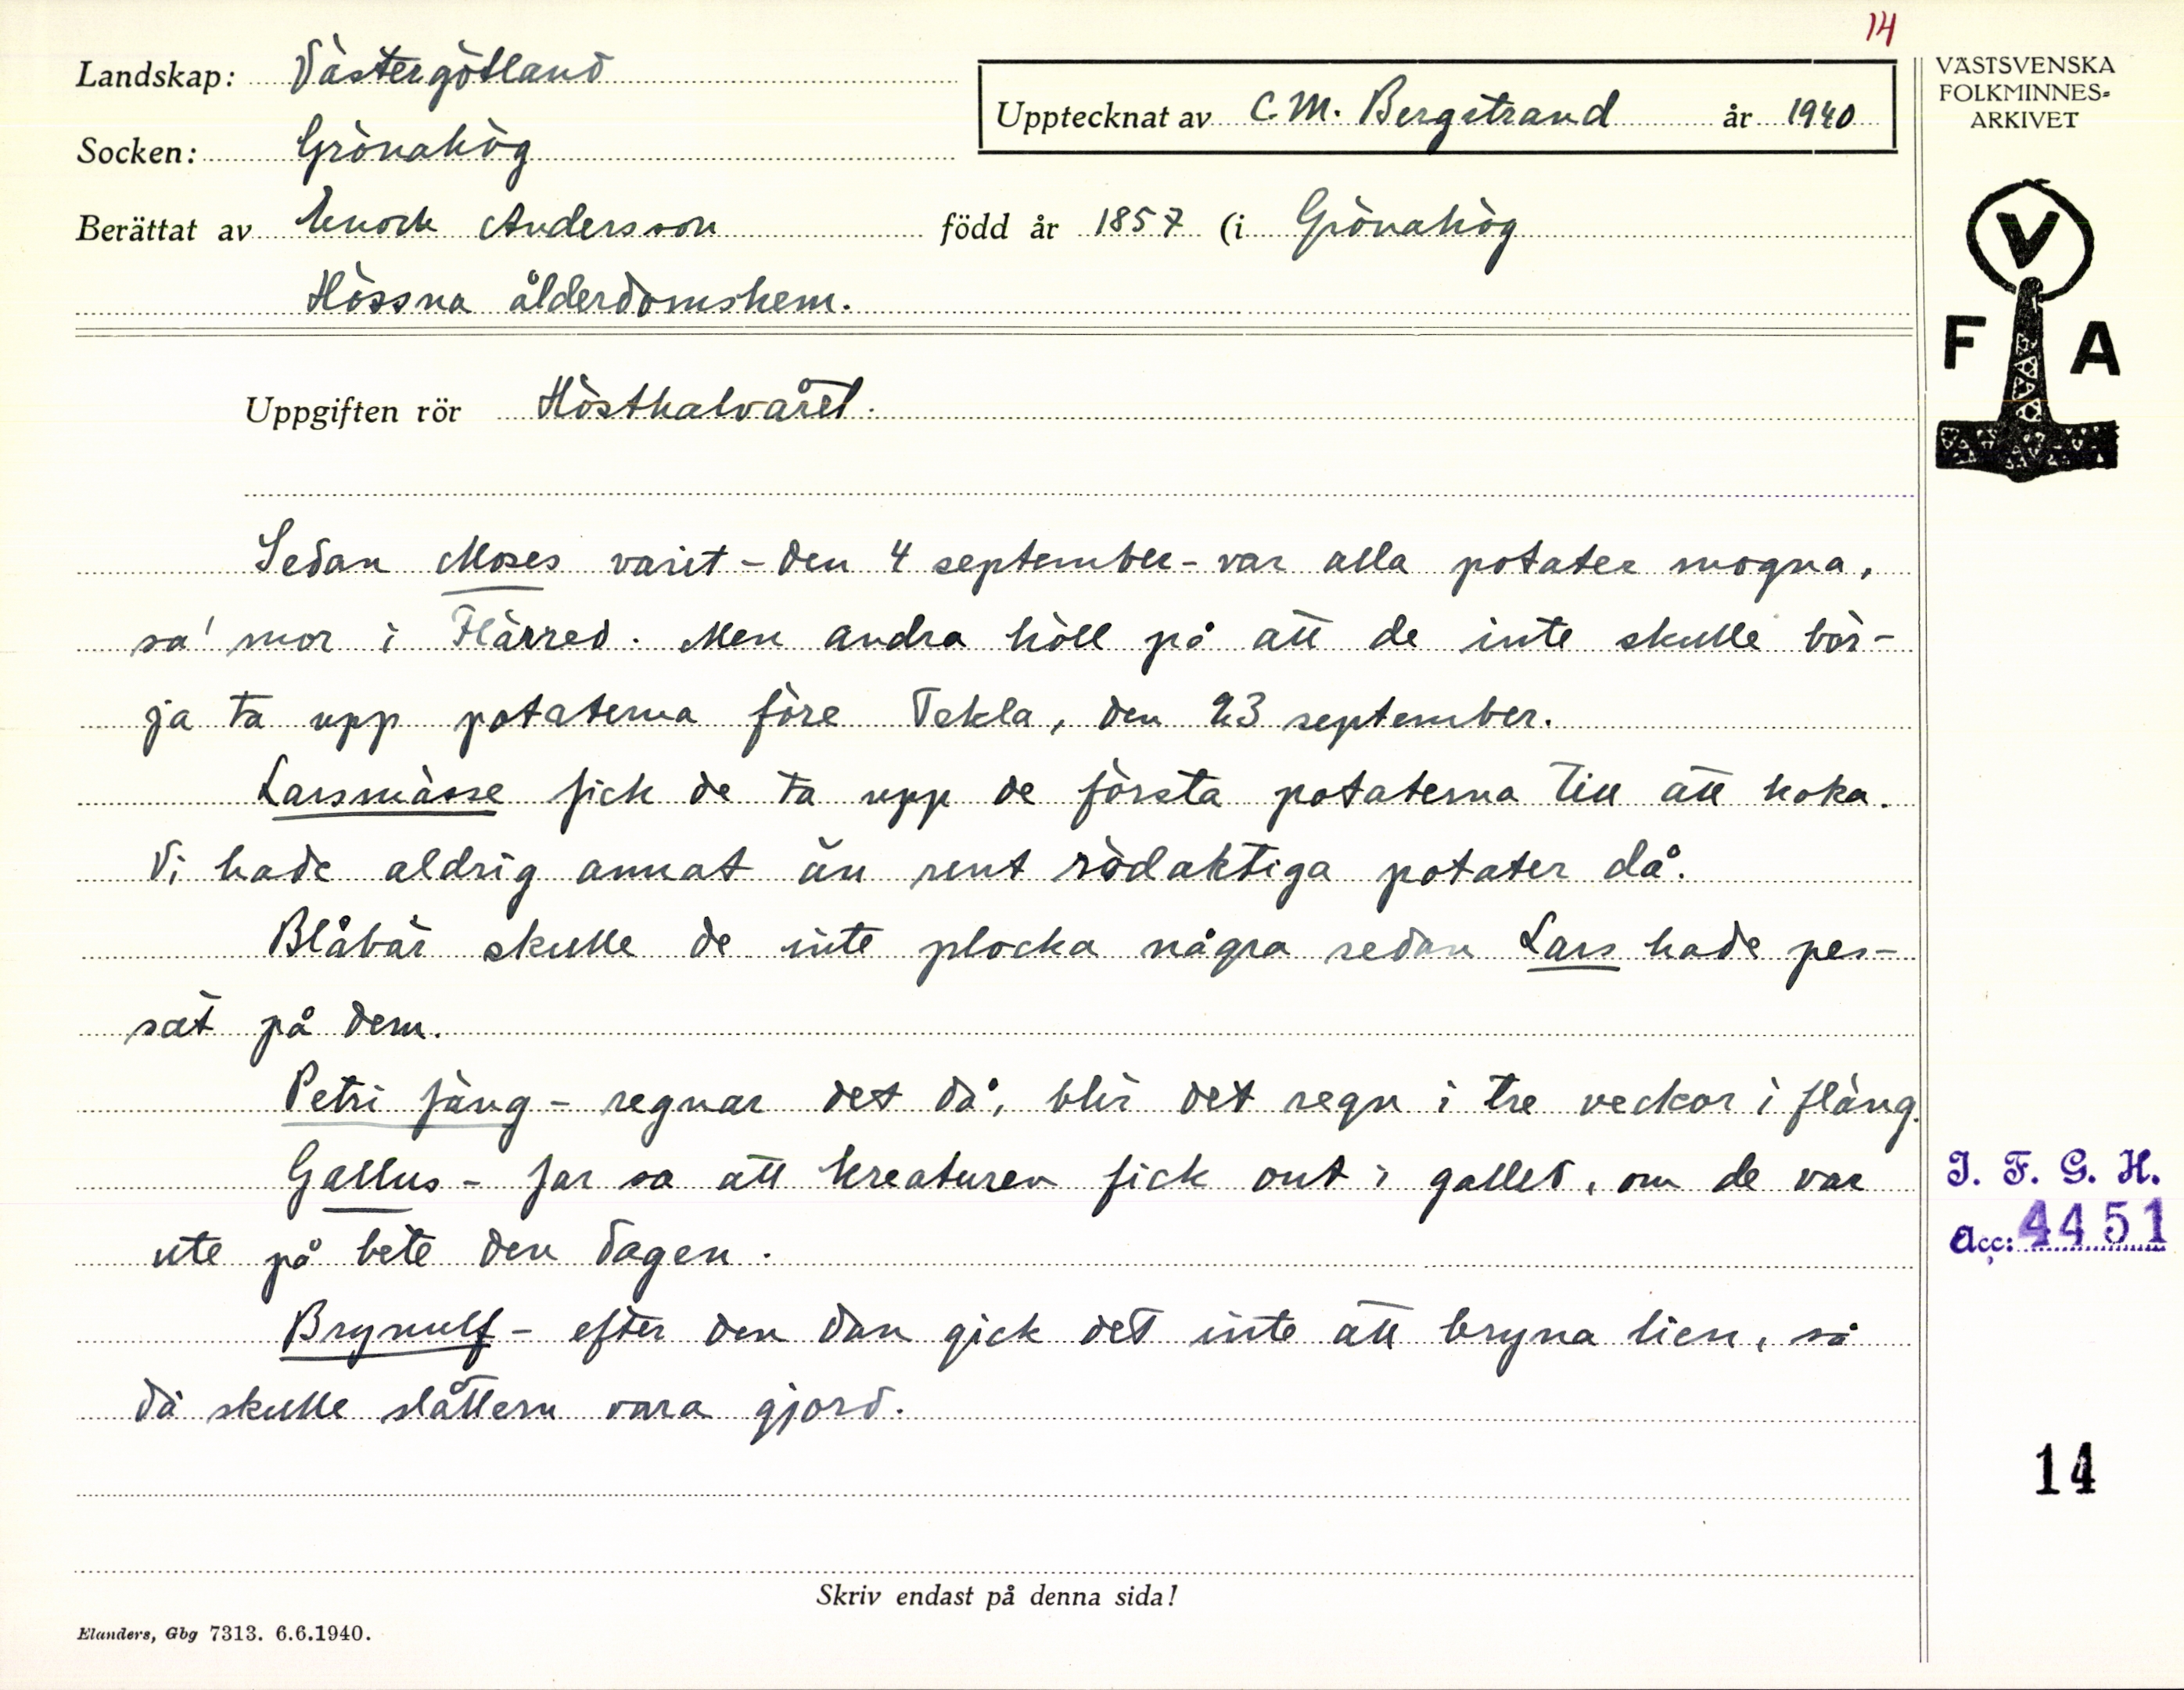 14
Landskap: Västergötland
Upptecknat av C.M. Bergstrand år 1940
Socken: Grönahög
Berättat av Enock Andersson född år 1857 (i Grönahög
Hössna ålderdomshem.
VÄSTSVENSKA
FOLKMINNES-
ARKIVET
V
F A
Uppgiften rör Hösthalvåret.
Sedan Moses varit - den 4 september - var alla potater mogna,
sa' mor i Flärred. Men andra höll på att de inte skulle bör-
ja ta upp potaterna före Tekla, den 23 september.
Larsmässe fick de ta upp de första potaterna till att koka.
Vi hade aldrig annat än rent rödaktiga potater då.
Blåbär skulle de inte plocka några sedan Lars hade pes-
sat på dem.
Petri fäng - regnar det då, blir det regn i tre veckor i fläng.
Gallus - far sa att kreaturen fick ont i galled, om de var
ute på bete den dagen.
Brynulf - efter den dan gick det inte att bryna lien, så
då skulle slåttern vara gjord.
I. F. G. H.
Acc: 4451
14
Skriv endast på denna sida!
Elanders, Gbg 7313. 6.6.1940.